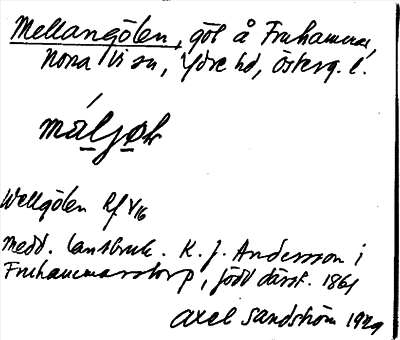 Mellangölen, göl å Fruhammar,
Norra Vi sn, Ydre hd, Österg. l.
máljøl
Wellgölen Rf V/16
Medd. lantbruk. K. J. Andersson i
Fruhammarstorp, född därst. 1861
Axel Sandström 1929